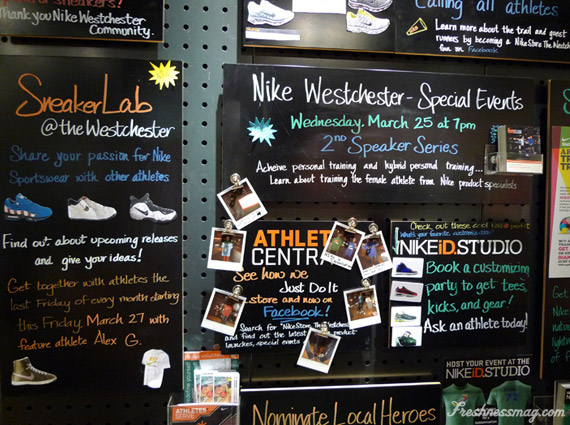 Thank you Nike Westchester
Community.
Calling all athletes
Learn more about the trail and
runners by becoming a NikeStore The West
fan on Facebook
SneakerLab
@theWestchester
Share your passion for Nike
Sportswear with other athletes
Find out about upcoming releases
and give your ideas!
Get together with athletes the
last Friday of every month starting
this Friday, March 27 with
feature athlete Alex G.
Nike Westchester - Special Events
Wednesday, March 25 at 7pm
2nd Speaker Series
Acheive personal training and hybrid personal training...
Learn about training the female athlete from Nike product specialists
ATHLET
CENTRA
See how we
Just Do It
store and now on
Facebook!
Search for "NikeStore, The
and find out the latest product
launches, special events
Check out these cool
What's your favorite
NIKEiD.STUDIO
Book a customizing
party to get tees,
kicks, and gear!
Ask an athlete today!
HOST YOUR EVENT AT THE
NIKEiD.STUDIO
ATHLETES
SERVE
Nominate Local Heroes
Freshnessmag.com